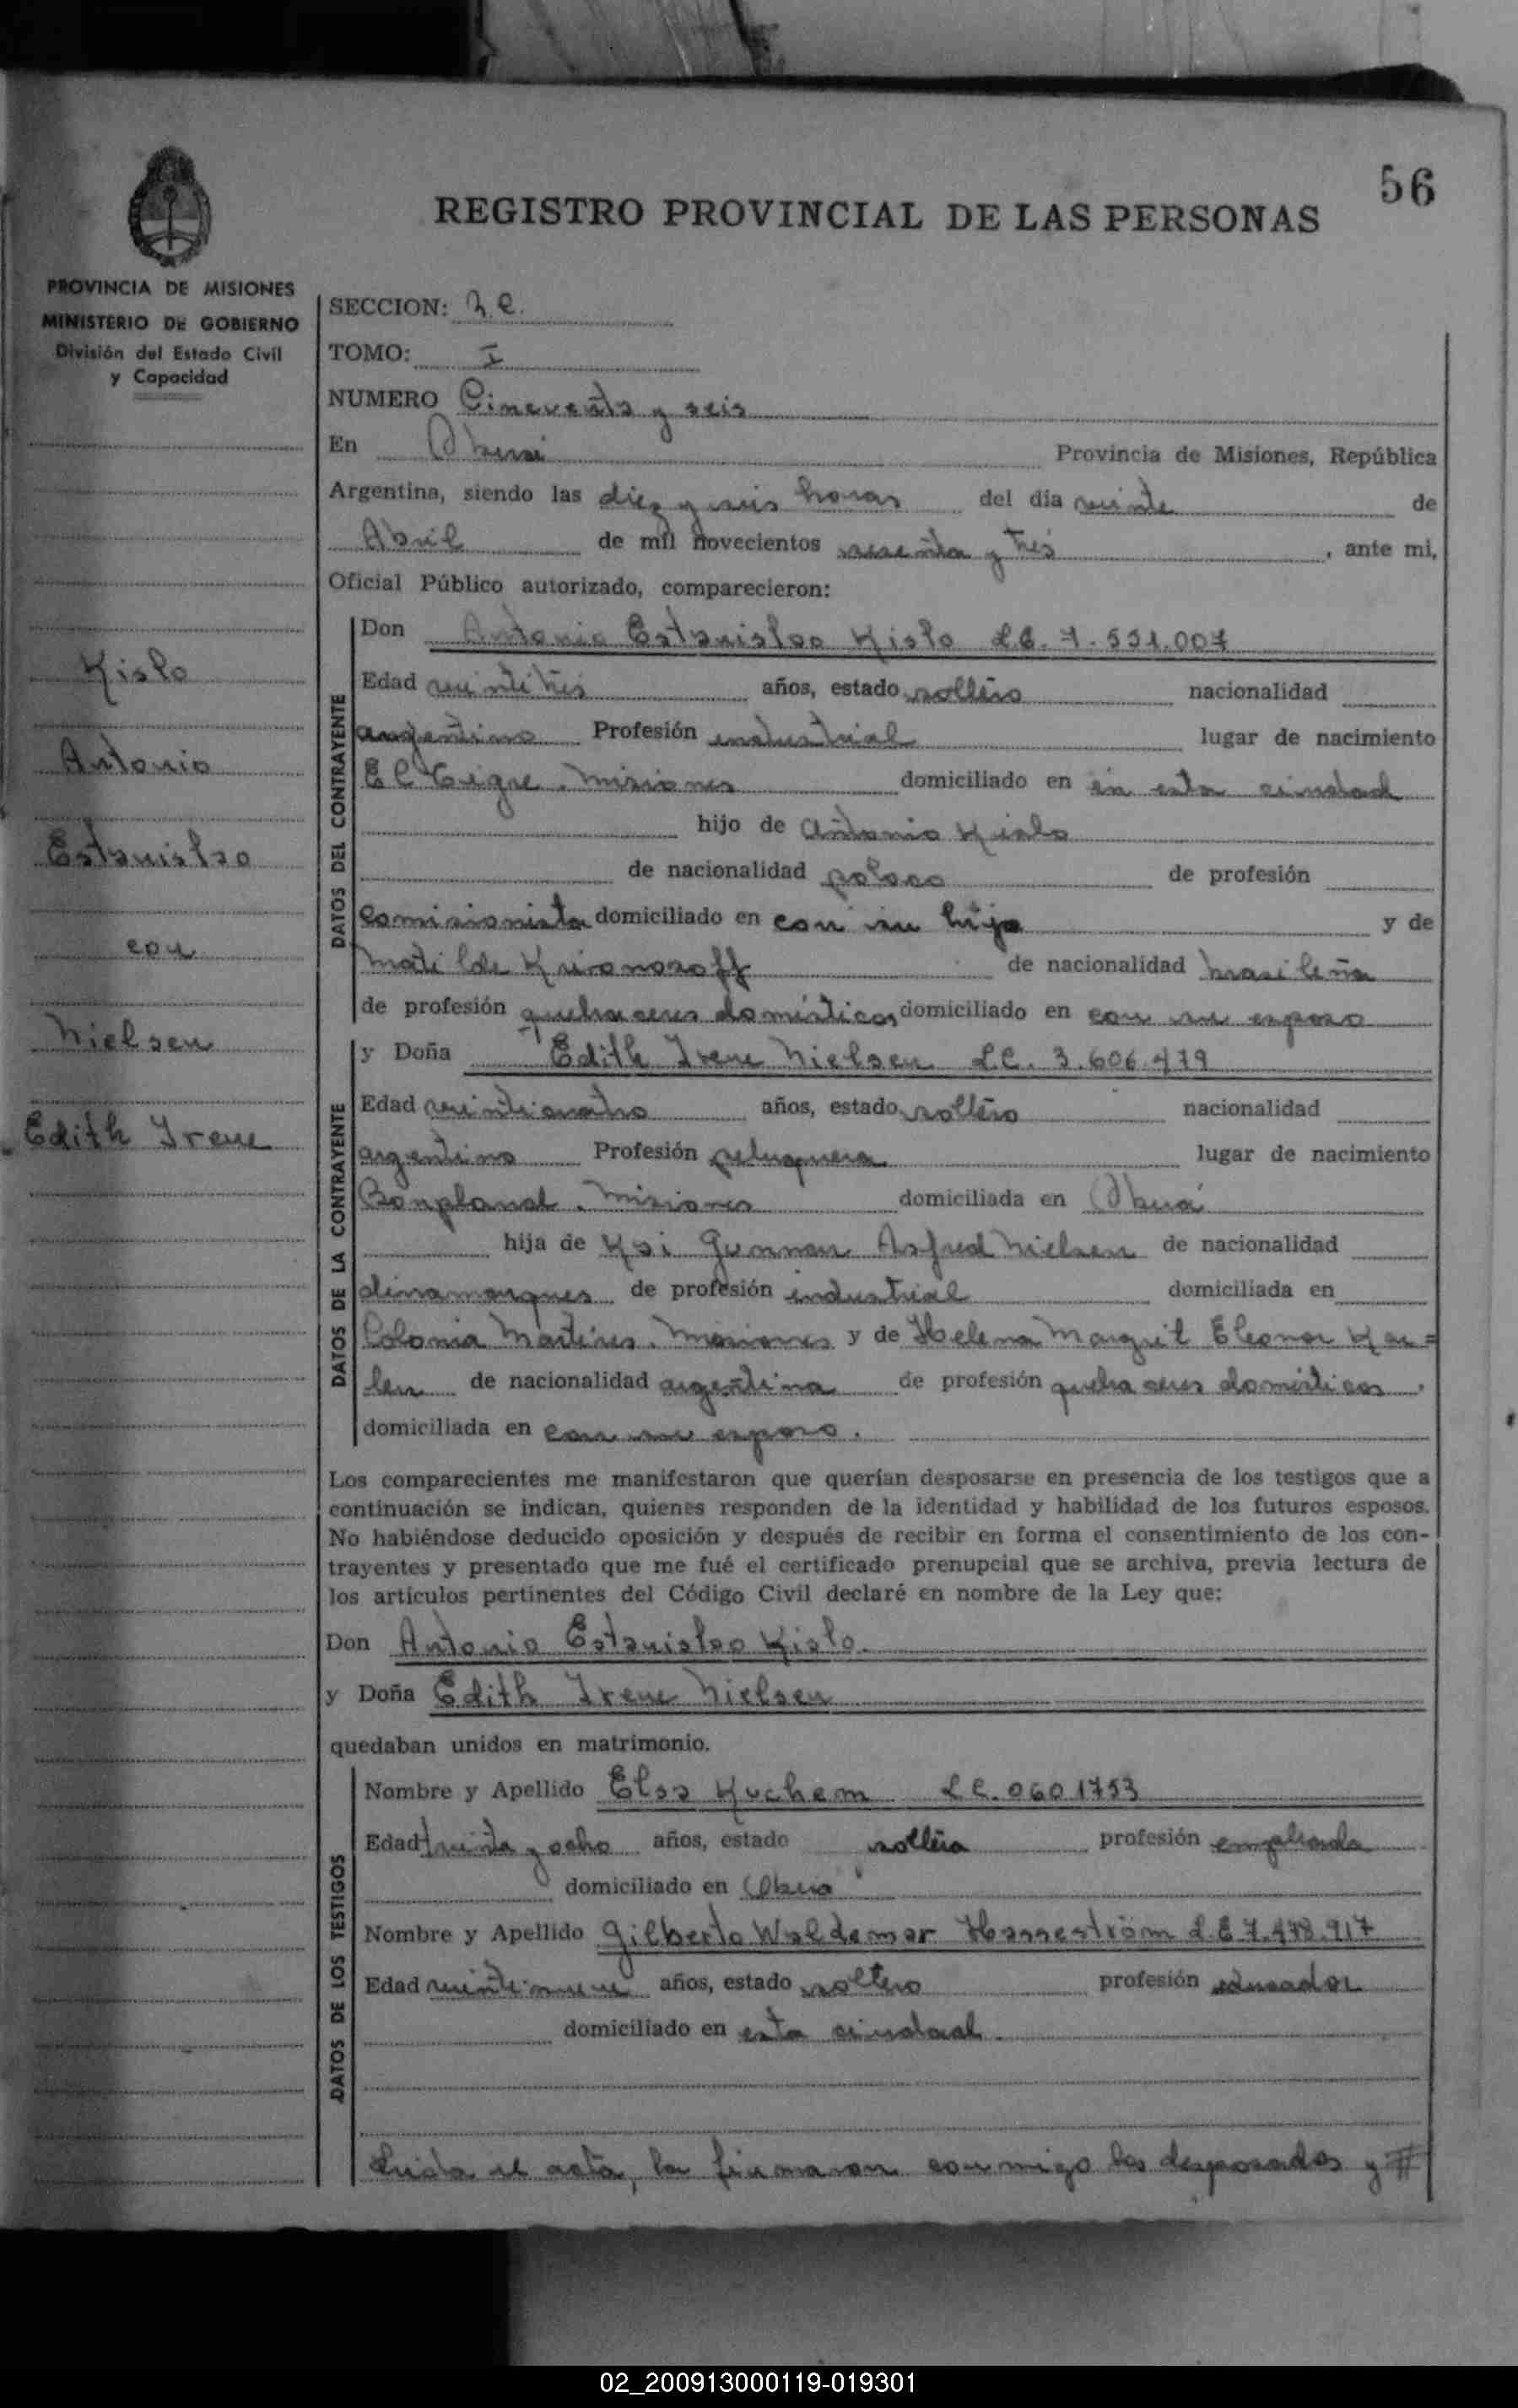 56
REGISTRO PROVINCIAL DE LAS PERSONAS
PROVINCIA DE MISIONES
MINISTERIO DE GOBIERNO
División del Estado Civil
y Capacidad
Kislo
Antonio
Estanislao
con
Nielsen
Edith Irene
SECCION:
TOMO: I
NUMERO Cincuenta y seis
En Oberá Provincia de Misiones, República
Argentina, siendo las diez y seis horas del día veinte de
Abril de mil novecientos sesenta y tres, ante mi,
Oficial Público autorizado, comparecieron:
DATOS DEL CONTRAYENTE
Don Antonio Estanislao Kislo L.E. 7.531.007
Edad veintitres años, estado soltero nacionalidad
argentino Profesión industrial lugar de nacimiento
El Tigre. Misiones domiciliado en en esta ciudad
hijo de Antonio Kislo
de nacionalidad polaco de profesión
comisionista domiciliado en con su hijo y de
Matilde Krivonosoff de nacionalidad brasileña
de profesión quehaceres domésticos domiciliado en con su esposo
DATOS DE LA CONTRAYENTE
y Doña Edith Irene Nielsen L.C. 3.606.479
Edad veinticuatro años, estado soltera nacionalidad
argentina Profesión peluquera lugar de nacimiento
Bonpland. Misiones domiciliada en Oberá
hija de Kai Gunnar Asfred Nielsen de nacionalidad
dinamarques de profesión industrial domiciliada en
Colonia Martires. Misiones y de Helena Margrit Eleonor
de nacionalidad argentina de profesión quehaceres domésticos.
domiciliada en con su esposo.
Los comparecientes me manifestaron que querían desposarse en presencia de los testigos que a
continuación se indican, quienes responden de la identidad y habilidad de los futuros esposos.
No habiéndose deducido oposición y después de recibir en forma el consentimiento de los con-
trayentes y presentado que me fué el certificado prenupcial que se archiva, previa lectura de
los artículos pertinentes del Código Civil declaré en nombre de la Ley que:
Don Antonio Estanislao Kislo.
y Doña Edith Irene Nielsen
quedaban unidos en matrimonio.
DATOS DE LOS TESTIGOS
Nombre y Apellido Elsa Kuchem L.C. 0601753
Edad treinta y ocho años, estado soltera profesión empleada
domiciliado en Oberá
Nombre y Apellido Gilberto Waldemar Hasseström L.E 7.478.917
Edad veintinueve años, estado soltero profesión educador
domiciliado en esta ciudad.
Leida el acta, la firmaron conmigo los desposados y #
02_200913000119-019301